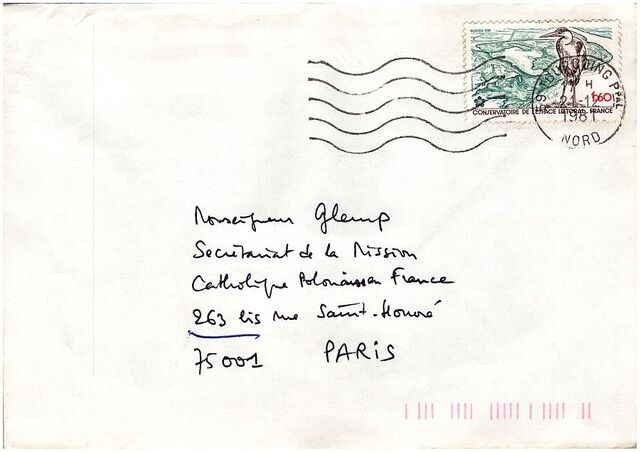 POSTES 1981
1,60
CONSERVATOIRE DE L'ESPACE LITTORAL. FRANCE
59 TOURCOING PPAL
H
21-12
1981
NORD
Monseigneur Glemp
Secrétariat de la Mission
Catholique Polonaise en France
263 bis rue Saint-Honoré
75001 PARIS